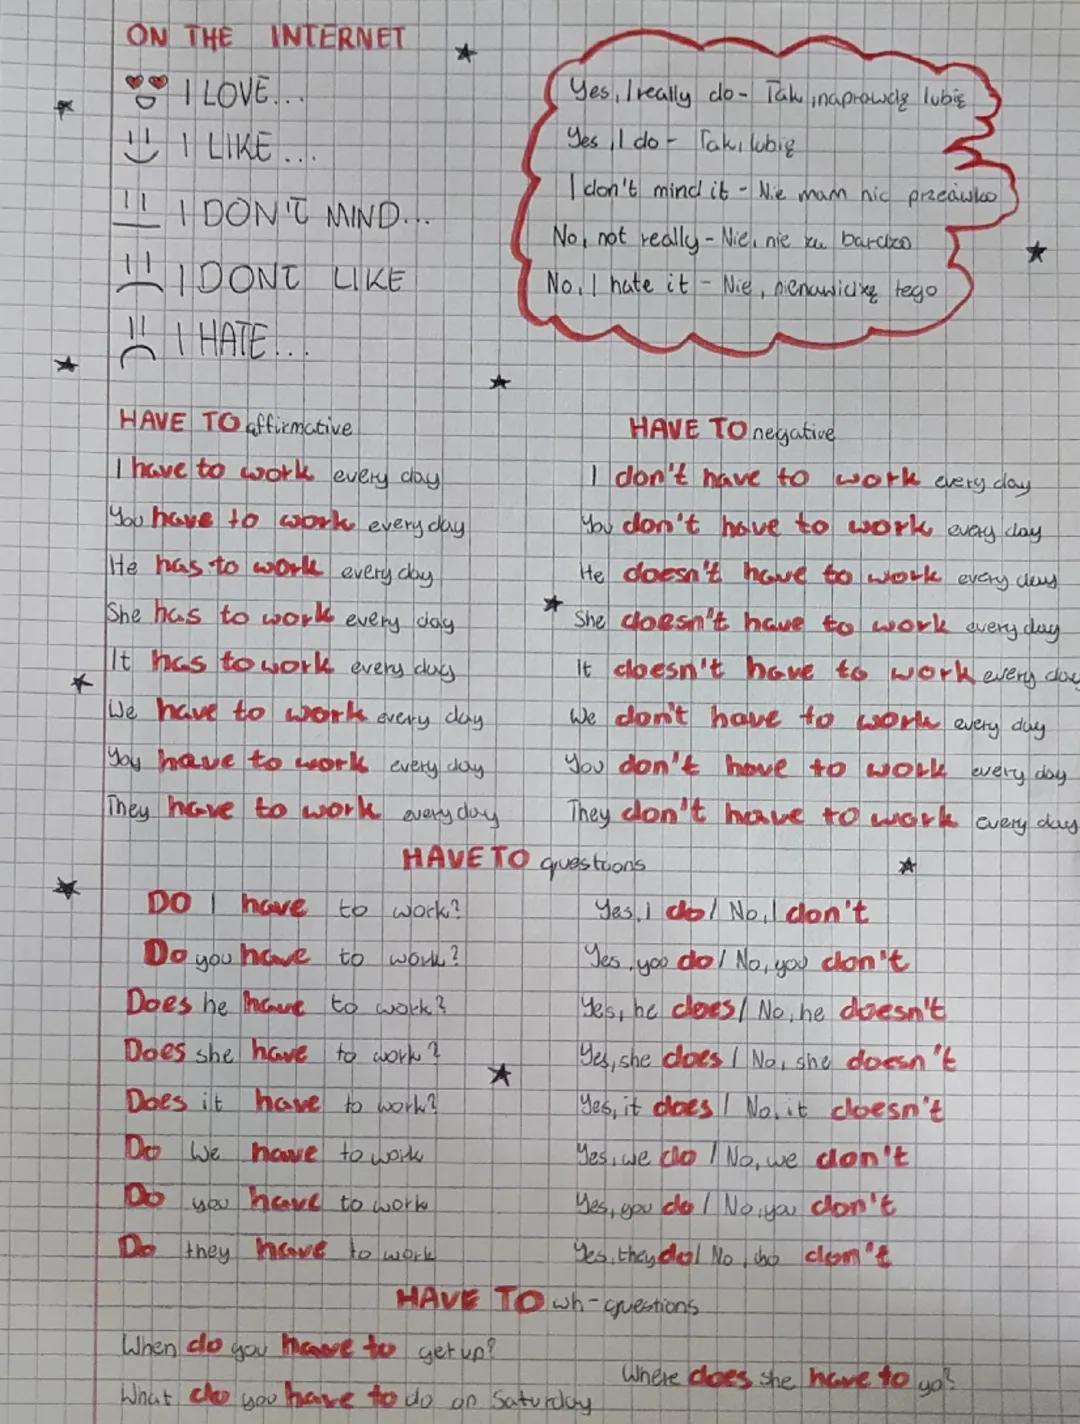 ON THE INTERNET
I LOVE...
I LIKE...
I DON'T MIND...
I DONT LIKE
I HATE...
Yes, I really do - Tak, naprawdę lubię
Yes, I do - Tak, lubię
I don't mind it - Nie mam nic przeciwko
No, not really - Nie, nie za bardzo
No, I hate it - Nie, nienawidzę tego
HAVE TO affirmative
I have to work every day
You have to work every day
He has to work every day
She has to work every day
It has to work every day
We have to work every day
You have to work every day
They have to work every day
HAVE TO negative
I don't have to work every day
You don't have to work every day
He doesn't have to work every day
She doesn't have to work every day
It doesn't have to work every day
We don't have to work every day
You don't have to work every day
They don't have to work every day
HAVE TO questions
DO I have to work?
Do you have to work?
Does he have to work?
Does she have to work?
Does it have to work?
Do we have to work
Do you have to work
Do they have to work
Yes, I do / No, I don't
Yes, you do / No, you don't
Yes, he does / No, he doesn't
Yes, she does / No, she doesn't
Yes, it does / No, it doesn't
Yes, we do / No, we don't
Yes, you do / No, you don't
Yes, they do / No, don't
HAVE TO wh-questions
When do you have to get up?
Where does she have to go?
What do you have to do on Saturday